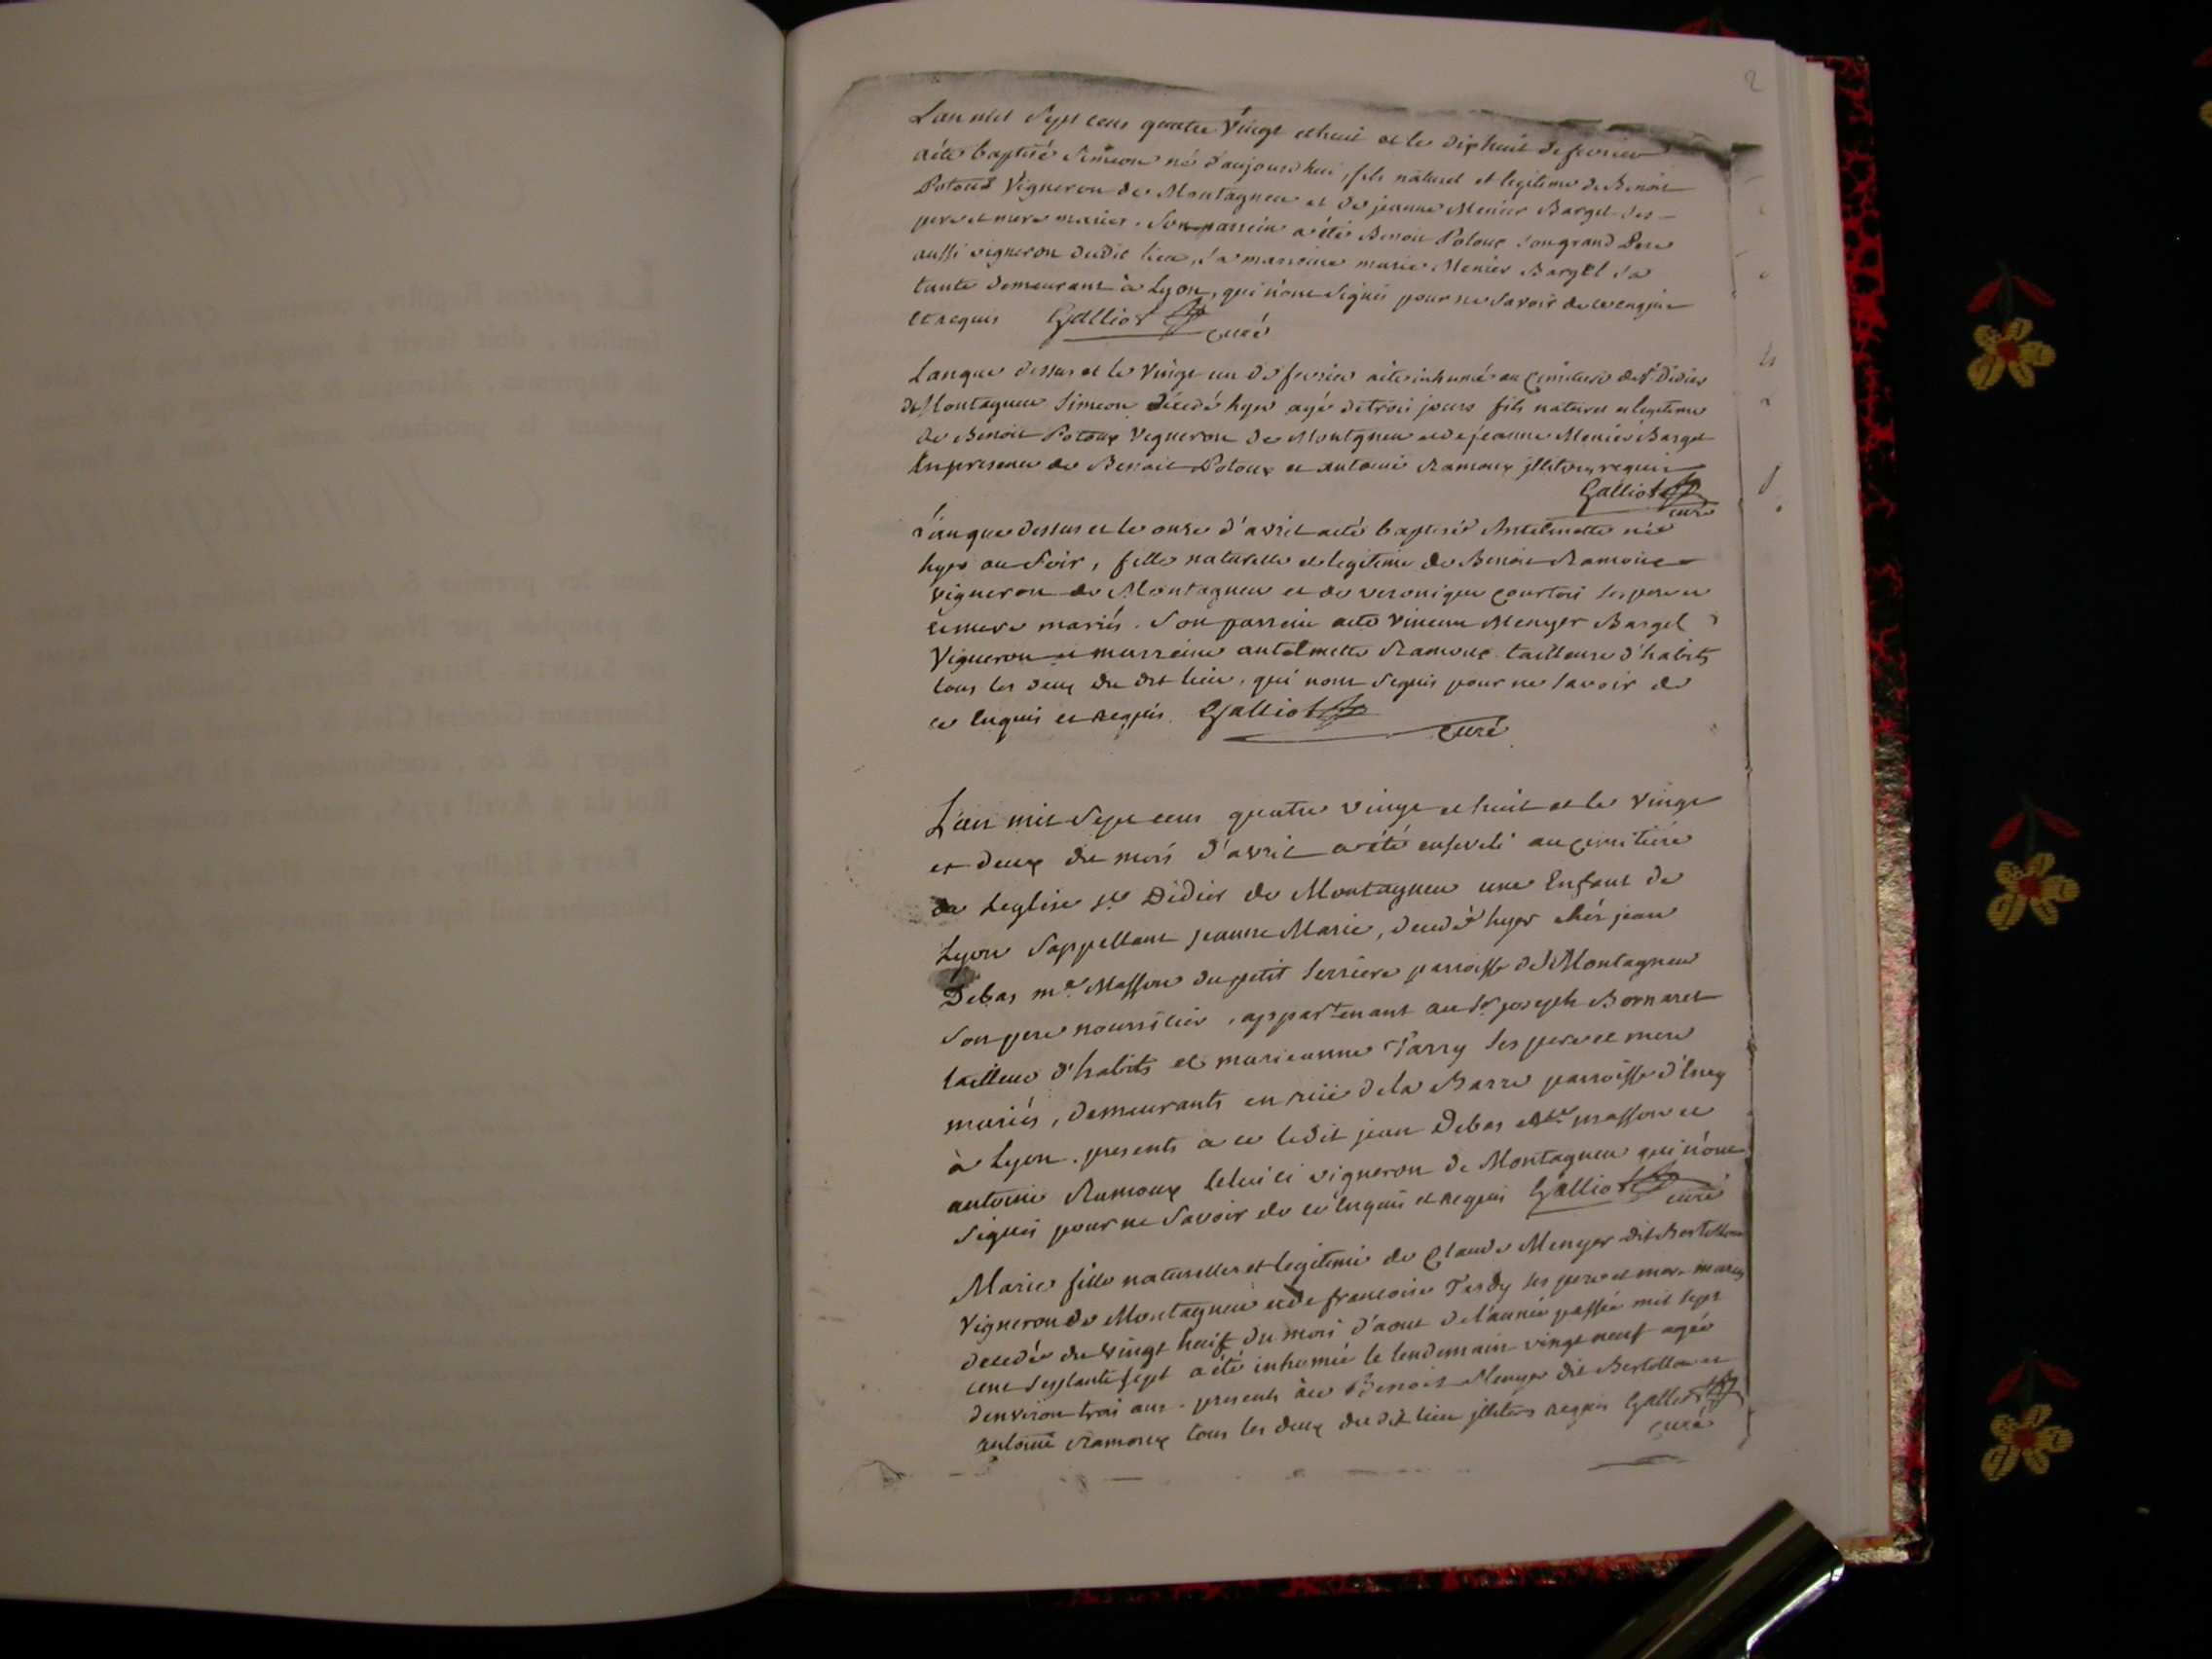 2
L'an mil sept cens quatre vingt et huit et le dixhuit de fevrier
a été baptisé Simeon né d'aujourd'hui, fils naturel et legitime de Benoit
Potoud Vigneron de Montagneu et de jeanne Menier Bargel ses
pere et mere mariés. Son parrein a été Benoit Potoux son grand Pere
aussi vigneron dudit lieu, sa marreine marie Menier Bargel sa
tante demeurant à Lyon, qui n'ont signés pour ne savoir de ce enquis
et requis Galliot
curé
L'an que dessus et le vingt un de fevrier a été inhumé au cimitiere de st Didier
de Montagneu Simeon décédé hyer agé de trois jours fils naturel et legitime
de Benoit Potoux Vigneron de Montgneu et de jeanne Menier Bargel
En presence de Benoit Potoux et antoine Ramoux illiteres requis
Galliot
curé
L'an que dessus et le onze d'avril a été baptisée Antelmette née
hyer au soir, fille naturelle et legitime de Benoit Ramoux
vigneron de Montagneu et de veronique courtois ses pere et
et mere mariés. Son parrein a été Vincent Menyer Bargel
Vigneron et marreine antelmette Ramoux tailleuse d'habits
tous les deux du dit lieu, qui n'ont signés pour ne savoir de
ce Enquis et Requis. Galliot
curé
L'an mil sept cens quatre vingt et huit et le vingt
et deux du mois d'avril a été enseveli au cimitiére
de Leglise st Didier de Montagneu une Enfant de
Lyon s'appellant jeanne Marie, decedé hyer chés jean
Debas me. Masson du petit Serriere parroisse de Montagneu
son pere nourricier, appartenant au sr. joseph Bornaret
tailleur d'habits et marieanne Parry ses pere et mere
mariés, demeurants en ruë de la Barre parroisse d'Eney
à Lyon. presents a ce ledit jean Debas me. masson et
antoine Ramoux celui ci vigneron de Montagneu qui n'ont
signés pour ne savoir de ce Enquis et Requis Galliot
curé
Marie fille naturelle et legitime de Claude Menyer dit Bertollon
Vigneron de Montagneu et de francoise Tardy ses pere et mere mariés
decedée du vingt huit du mois d'aout de l'année passée mil sept
cent septante sept a été inhumée le lendemain vingt neuf agée
d'environ trois ans. presents à ce Benoit Menyer dit Bertollon et
antoine Ramoux tous les deux du dit lieu illiteres requis Galliot
curé